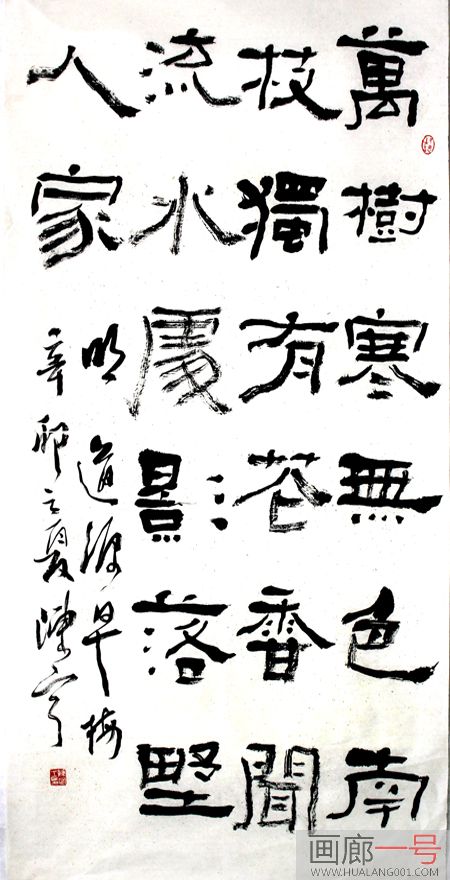 萬樹寒無色南
枝獨有花香聞
流水處影落野
人家
明道源早梅
辛卯之夏陳亨
画廊一号
WWW.HUALANG001.COM